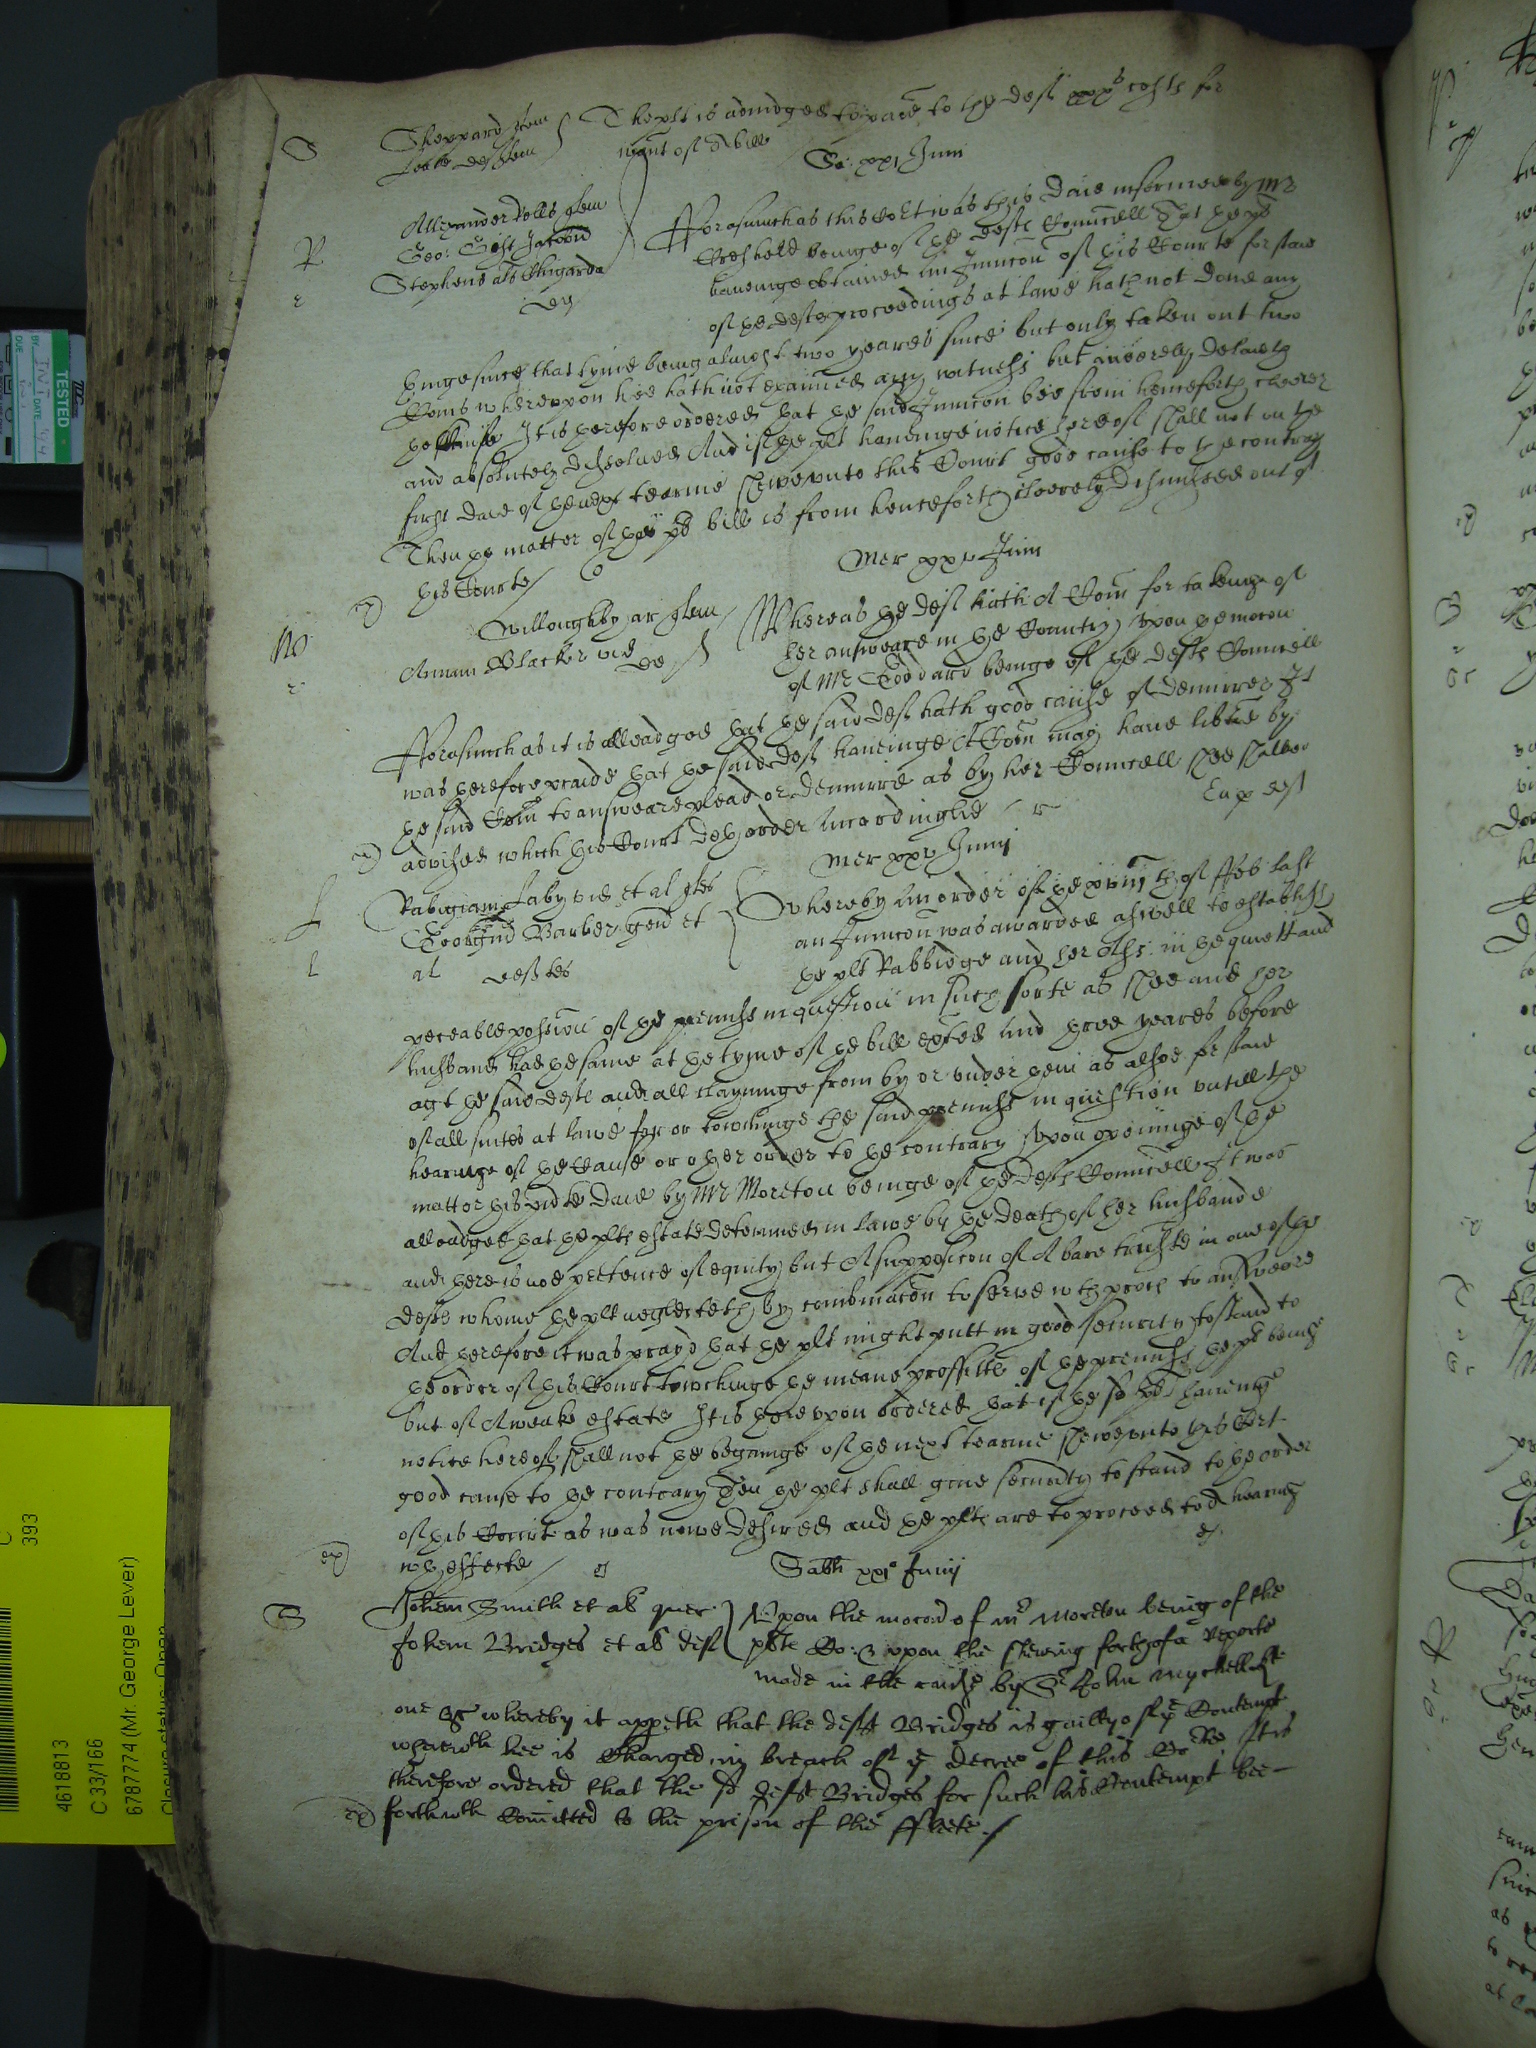 S Sheppard quer
Locke deft
The plt is adiudged to paie to the deft xxxs costs for
want of A bill
Sa: xxi Junii
R Allexander Rolls quer
Geo: Jacobb
Stephens als
def
Fforasmuch as this Cort was this Daie informed by Mr
Cresheld beinge of the defts Councell That the plt
haveinge obtained An Iniuncon of this Courte for staie
of the defts proceedings at lawe hath not Done any
thinge since that tyme being almost two yeares since but only taken out two
Coms whereupon hee hath not examined any witness but meerely delaieth
the It is therefore ordered that the said Iniuncon bee from henceforth cleerely
and absolutely dissolued And if the plt haueinge notice hereof shall not on the
first Daie of the next tearme shewe vnto this Court good cause to the contrary
Then the matter of the plts bill is from henceforth cleerely dismissed out of
this Courte
Mer xxv Junii
W Willoughby ar quer
Annam Blacker vid
def
Whereas the deft hath A Com for takeinge of
her answeare in the Countrey Vpon the mocon
of Mr Goddard beinge of the defts Councell
Fforasmuch as it is alleadged that the said deft hath good cause of demurrer It
was therefore praide that the saide deft haueinge A Com may haue libtie by
the said Com to answeare plead or demurre as by her Councell shee shalbee
advised which this Court doth order Accordinglie
Ex p deft
Mer xxv Junii
L Rabigiam Laby vid et al qtes
Georgiu Barber gen et
al deftes
Whereby An order of the xviiith of Ffeb last
an Iniuncon was awarded aswell to establish
the plt Rabbidge and her assis: in the quiett and
peceable possion of the premiss in question in such sorte as shee and her
husband had the same at the tyme of the bill exhted And three yeares before
agt the said defts and all clayminge from by or vnder them as alsoe for staie
of all suites at lawe for or towchinge the said premiss in question vntill the
hearinge of the Cause or other order to the contrary Vpon openinge of the
matter this psente Daie by Mr Moreton beinge of the defts Councell It was
alleadged that the plts estate determined in lawe by the death of her husbande
and there is noe pretence of equity but A supposicon of A bare truste in one of the
defts whome the plt neglecteth by combinacon to serve wth proces to answeare
And therefore it was prayd that the plt might putt in good security to stand to
the order of this Court towchinge the meane proffitts of the premiss the plt beinge
but of A weake estate It is therevpon ordered that if the sd plt haueing
notice hereof shall not the begginge of the next tearme shewe vnto this Cort
good cause to the contrary Then the plt shall giue security to stand to the order
of this Courte as was nowe desired and the plts are to proceed to A hearing
wth effecte
Sabti xxi Junii
S Johem Smith et als quer
Johem Bridges et als deft
Vpon the mocon of Mr Moreton being of the
plts Co: & vpon the shewing forth of a reporte
made in the cause by Sr John Mychell Kt
one &c whereby it appeth that the deft Bridges is guilty of the Contempt
wherewth hee is Charged in breach of ye decree of this Corte It is
therefore ordered that the sd deft Bridges for such his Contempt bee
forthwth Comitted to the prison of the Ffleete
C
393
4618813
C 33/166
6787774 (Mr. George Lever)
Closure status: Open
TESTED